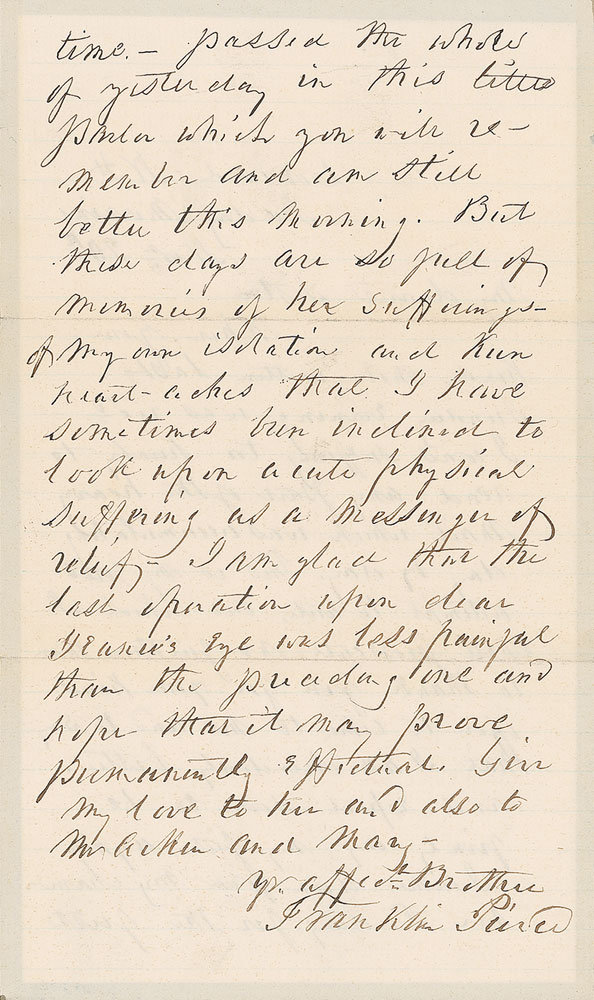 time. – passed the whole
of yesterday in this little
parlor which you will re-
member and am still
better this morning. But
these days are so full of
memories of her sufferings –
of my own isolation and keen
heart-aches that I have
sometimes been inclined to
look upon acute physical
suffering as a messenger of
relief – I am glad that the
last operation upon dear
eye was less painful
than the preceding one and
hope that it may prove
permanently effectual. Give
my love to her and also to
Mr Aiken and Mary –
yr. affect. Brother
Franklin Pierce